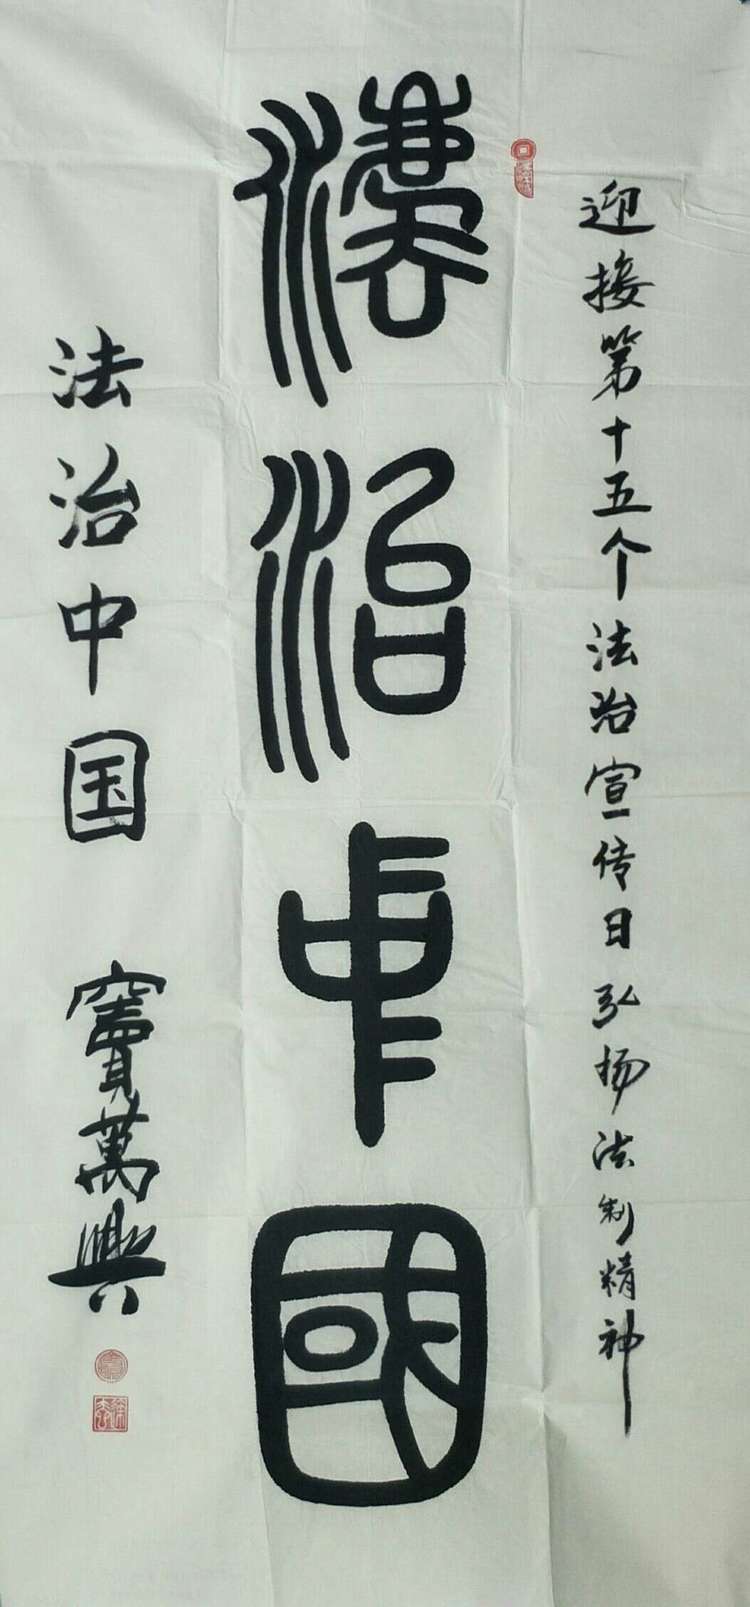 迎接第十五个法治宣传日弘扬法制精神
灋治中國
法治中国 竇萬興